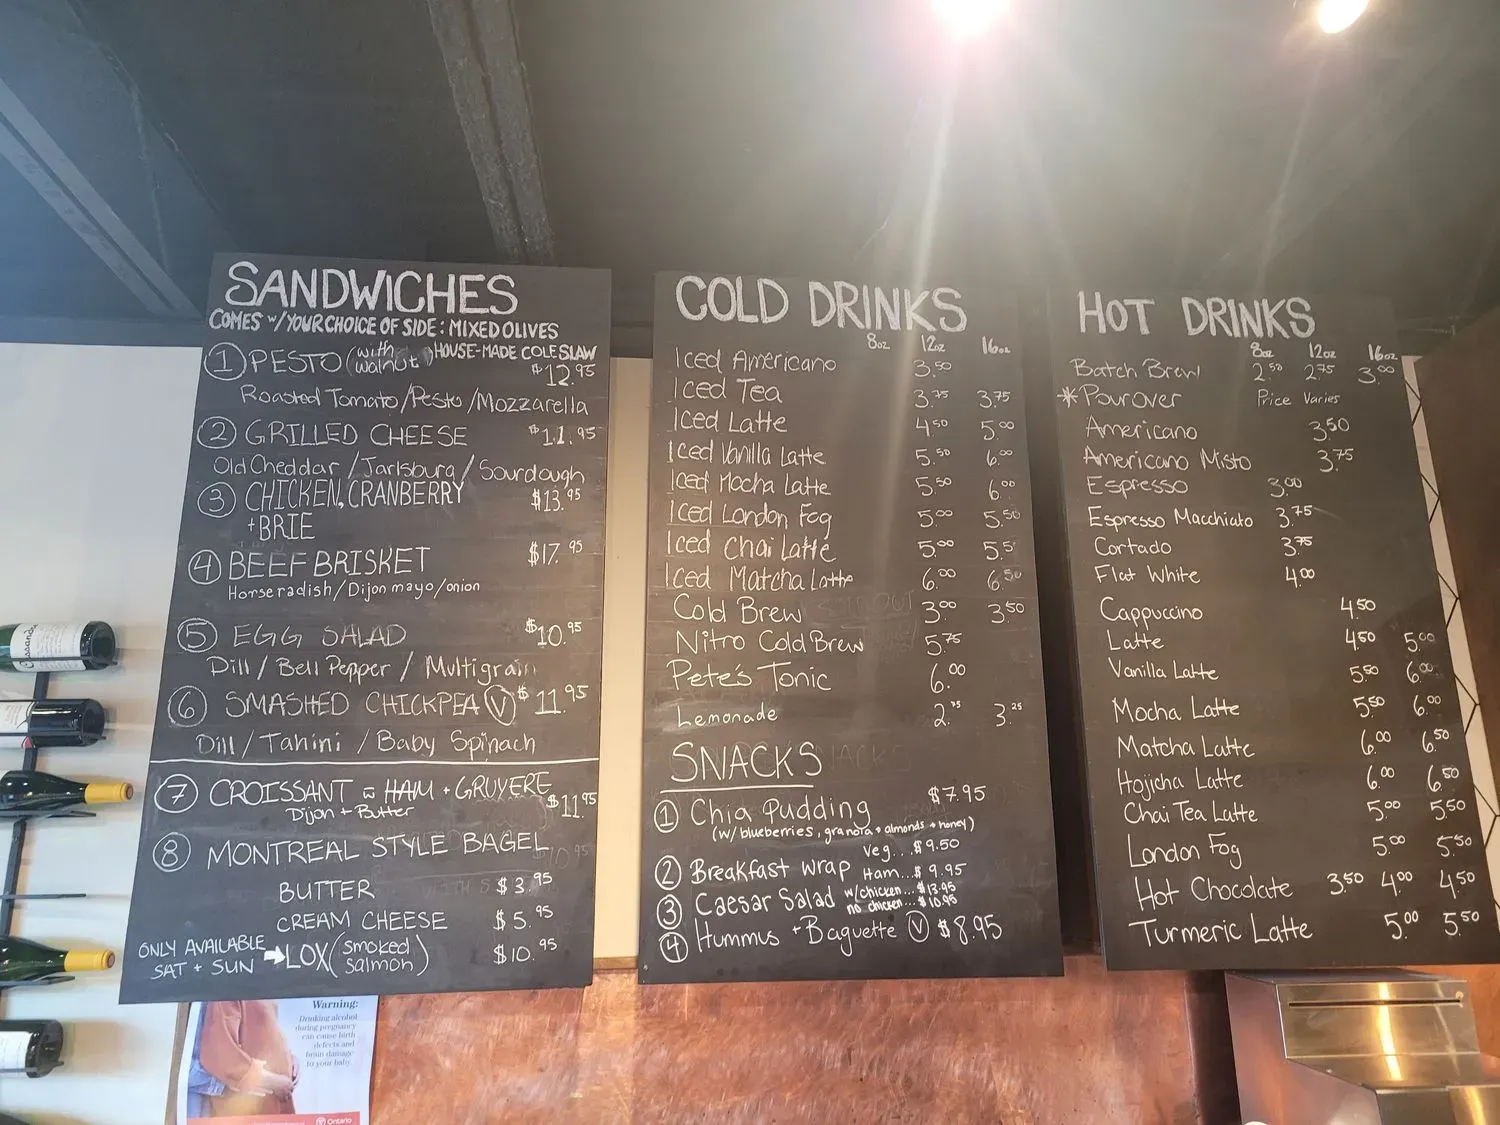 SANDWICHES
COMES w/ YOUR CHOICE OF SIDE: MIXED OLIVES
HOUSE-MADE COLESLAW
① PESTO (with walnut) $12.95
Roasted Tomato/Pesto/Mozzarella
② GRILLED CHEESE $11.95
Old Cheddar/Jarlsburg/Sourdough
③ CHICKEN, CRANBERRY $13.95
+BRIE
④ BEEF BRISKET $17.95
Horseradish/Dijon mayo/onion
⑤ EGG SALAD $10.95
Dill/Bell Pepper/Multigrain
⑥ SMASHED CHICKPEA Ⓥ $11.95
Dill/Tahini/Baby Spinach
⑦ CROISSANT w HAM + GRUYERE
Dijon + Butter $11.95
⑧ MONTREAL STYLE BAGEL
BUTTER $3.95
CREAM CHEESE $5.95
ONLY AVAILABLE SAT + SUN → LOX (smoked salmon) $10.95
COLD DRINKS
8oz 12oz 16oz
Iced Americano 3.50
Iced Tea 3.75 3.75
Iced Latte 4.50 5.00
Iced Vanilla Latte 5.50 6.00
Iced Mocha Latte 5.50 6.00
Iced London Fog 5.00 5.50
Iced Chai Latte 5.00 5.5
Iced Matcha Latte 6.00 6.50
Cold Brew 3.00 3.50
Nitro Cold Brew 5.75
Pete's Tonic 6.00
Lemonade 2.75 3.25
SNACKS
① Chia Pudding $7.95
(w/ blueberries, granola + almonds + honey)
② Breakfast wrap Veg...$9.50
Ham...$9.95
③ Caesar Salad w/chicken...$13.95
no chicken...$10.95
④ Hummus + Baguette Ⓥ $8.95
HOT DRINKS
8oz 12oz 16oz
Batch Brew 2.50 2.75 3.00
*Pour Over Price Varies
Americano 3.50
Americano Misto 3.75
Espresso 3.00
Espresso Macchiato 3.75
Cortado 3.75
Flat White 4.00
Cappuccino 4.50
Latte 4.50 5.00
Vanilla Latte 5.50 6.00
Mocha Latte 5.50 6.00
Matcha Latte 6.00 6.50
Hojicha Latte 6.00 6.50
Chai Tea Latte 5.00 5.50
London Fog 5.00 5.50
Hot Chocolate 3.50 4.00 4.50
Turmeric Latte 5.00 5.50
Warning:
Drinking alcohol
during pregnancy
can cause birth
defects and
brain damage
to your baby.
Ontario